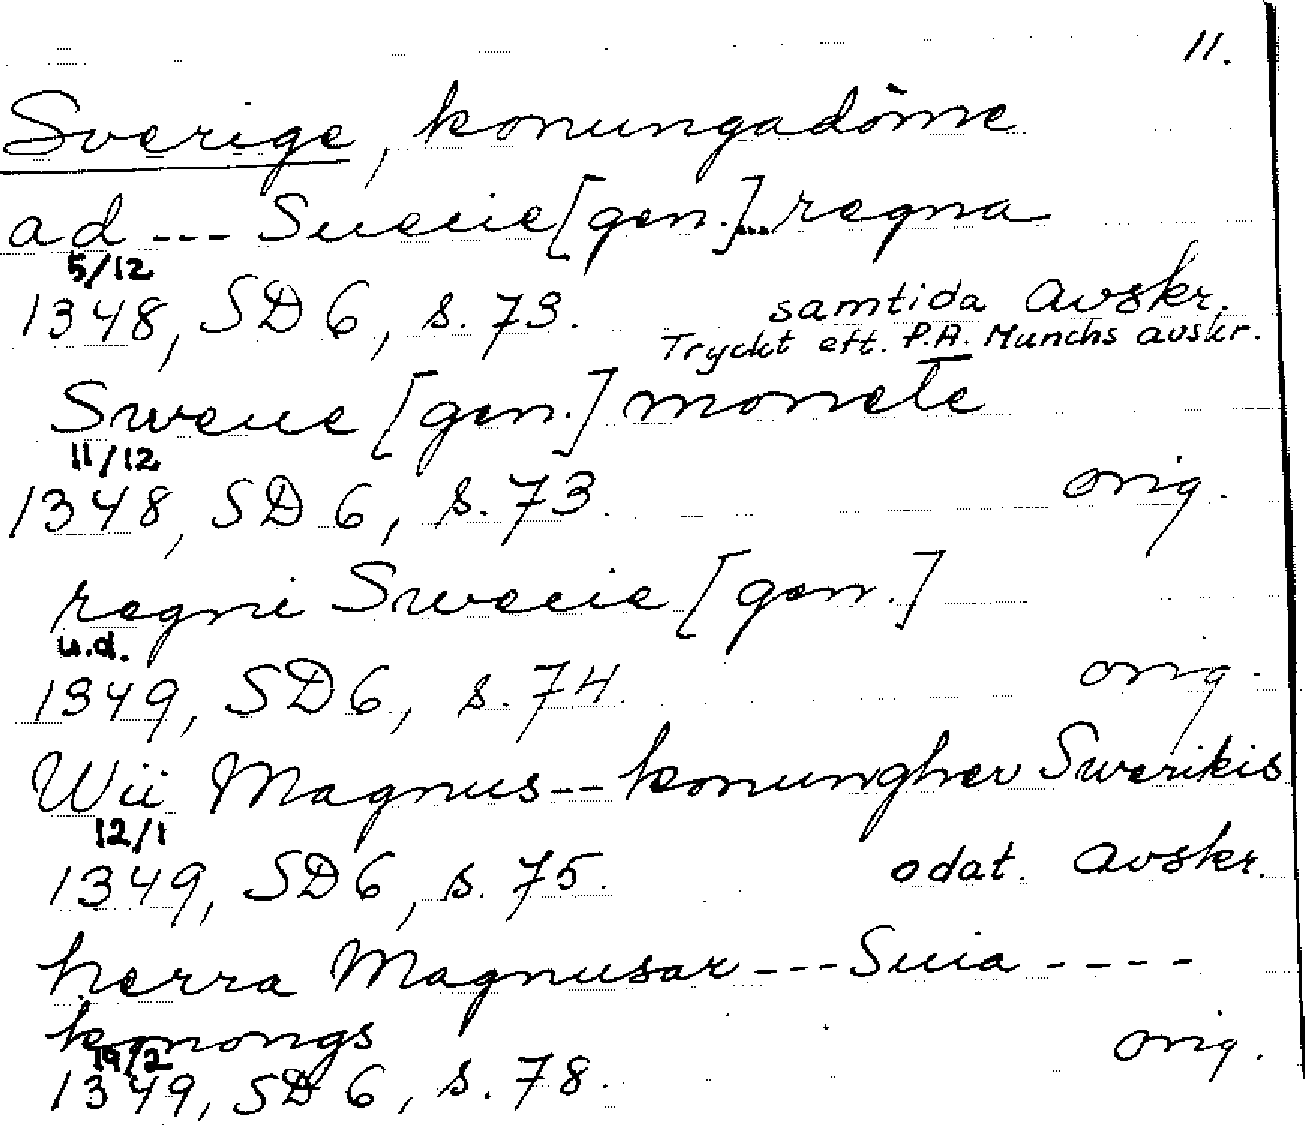 11.
Sverige, konungadöme
ad --- Suecie [gen.]... regna
5/12
1348, SD 6, s. 73. samtida Avskr.
Tryckt eft. P.A. Munchs avskr.
Swecie [gen.] monete
11/12
1348, SD 6, s. 73. orig.
regni Swecie [gen.]
u.d.
1349, SD 6, s. 74. orig.
Wii Magnus -- konungher Swerikis
12/1
1349, SD 6, s. 75. odat. Avskr.
herra Magnusar --- Suia ----
konongs
19/2
1349, SD 6, s. 78. orig.